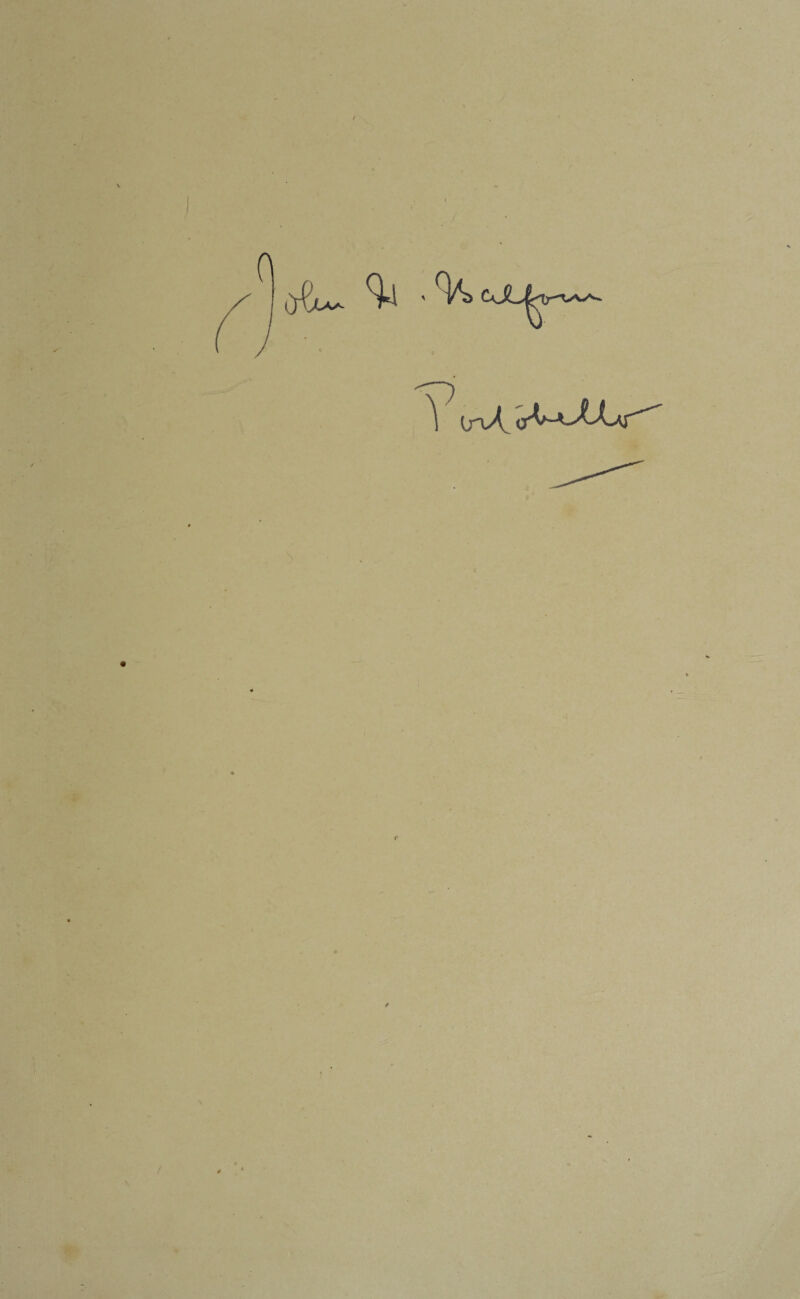 John Balfour
Portobello